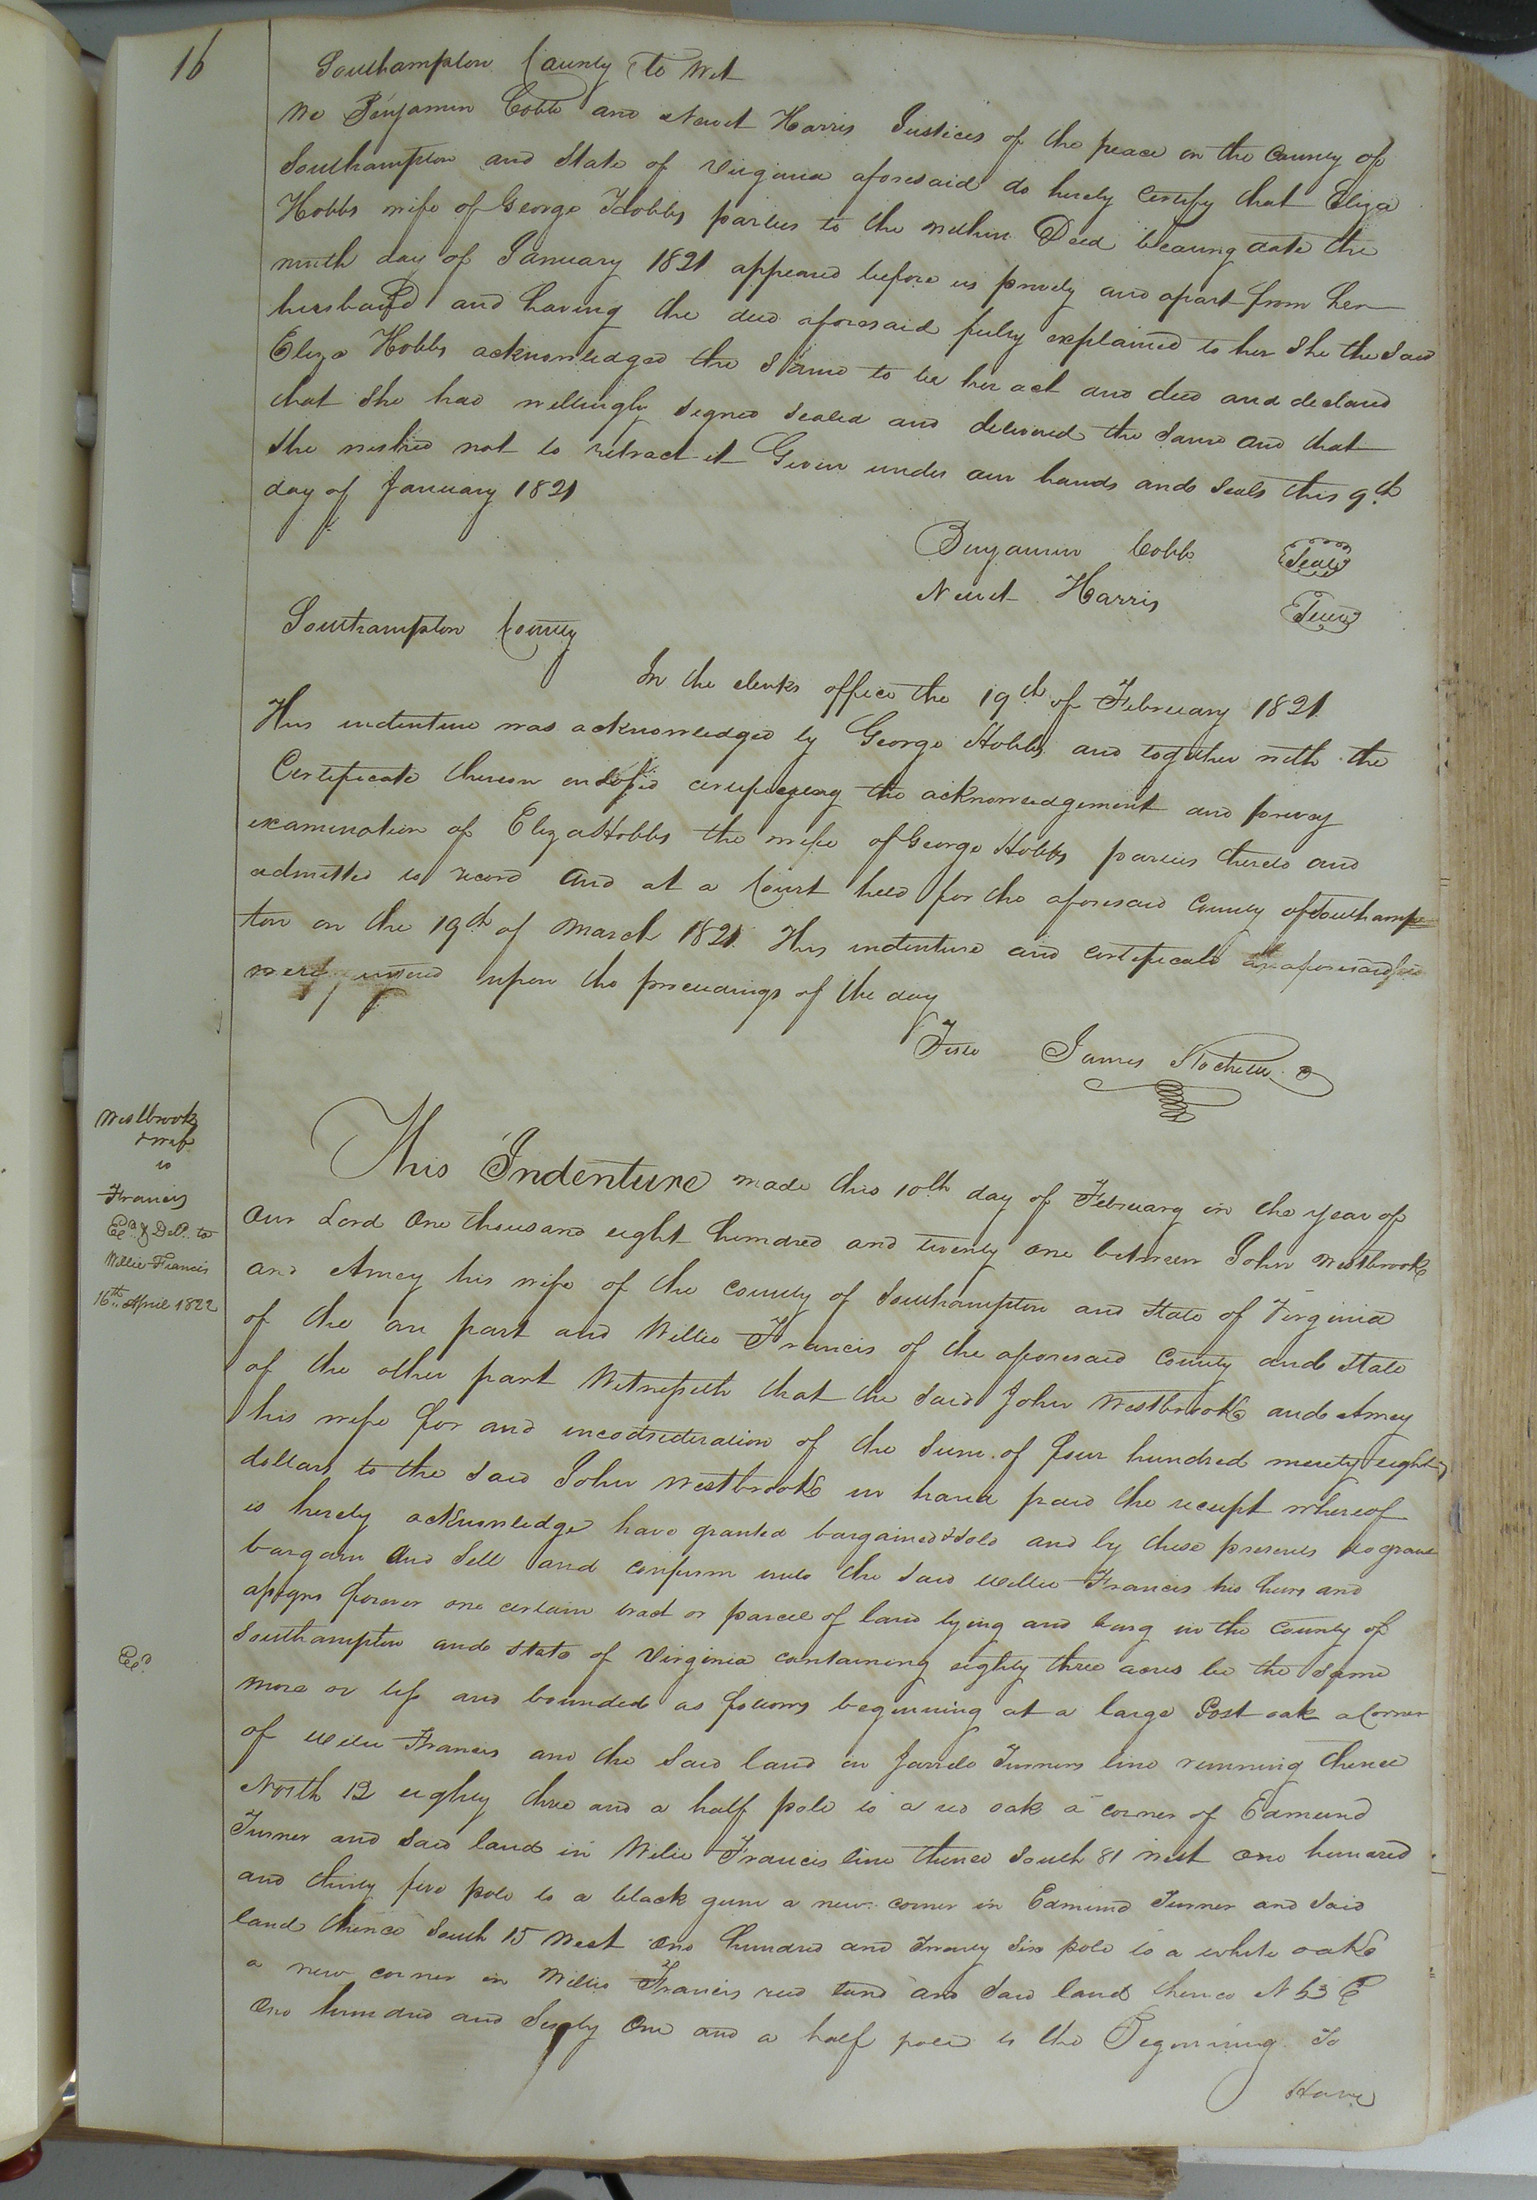 16
Southampton County To Wit
We Benjamin Cobb and Newit Harris Justices of the peace in the County of
Southampton and State of Virginia aforesaid do hereby Certify that Eliza
Hobbs wife of George Hobbs parties to the within Deed bearing date the
ninth day of January 1821 appeared before us privily and apart from her
husband and having the deed aforesaid fully explained to her She the Said
Eliza Hobbs acknowledged the Same to be her act and deed and declared
that She had willingly Signed Sealed and delivered the Same and that
She wished not to retract it Given under our hands and Seals this 9th
day of January 1821
Benjamin Cobb Seal
Newit Harris Seal
Southampton County
In the clerks office the 19th of February 1821
This indenture was acknowledged by George Hobbs and together with the
Certificate thereon certifying the acknowledgement and privey
examination of Eliza Hobbs the wife of George Hobbs parties thereto and
admitted to record and at a Court held for the aforesaid County of Southamp
ton on the 19th of March 1821 This indenture and certificate as aforesaid
were entered upon the proceedings of the day
Teste James Rochelle
Westbrook
& wife
to
Francis
Exd. & Deld. to
Willie Francis
16th April 1822
This Indenture made this 10th day of February in the year of
Our Lord One thousand eight hundred and twenty one between John Westbrook
and Amey his wife of the County of Southampton and State of Virginia
of the on part and Willie Francis of the aforesaid County and State
of the other part Witnesseth that the Said John Westbrook and Amey
his wife for and inconsideration of the Sum of four hundred ninety eight
dollars to the Said John Westbrook in hand paid the receipt whereof
is hereby acknowledge have granted bargained & Sold and by these presents do grant
bargain and Sell and confirm unto the Said Willie Francis his heirs and
assigns forever one certain tract or parcel of land lying and being in the County of
Southampton and State of Virginia containing eighty three acres be the Same
Exd.
more or less and bounded as follows beginning at a large Post oak a Corner
of Willie Francis and the Said land in Jarrels Turners line running thence
North 12 eighty three and a half pole to a red oak a corner of Edmund
Turner and Said land in Willie Francis line thence South 81 West One hundred
and thirty five pole to a black gum a new corner in Edmund Turner and Said
land thence South 15 West One hundred and Twenty Six pole to a white oak
a new corner in Willis Francis land and Said land thence N 53 E
One hundred and Sixty One and a half poles to the Beginning To
Have